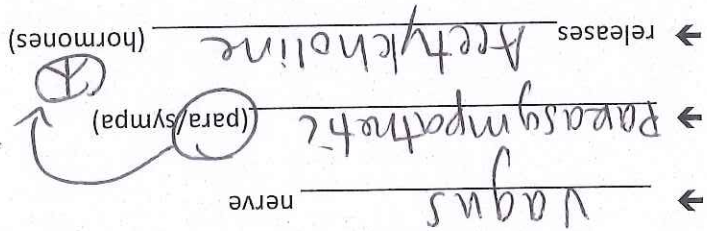 → Vagus nerve
→ Parasympathetic (para/sympa)
→ releases Acetylcholine (hormones)